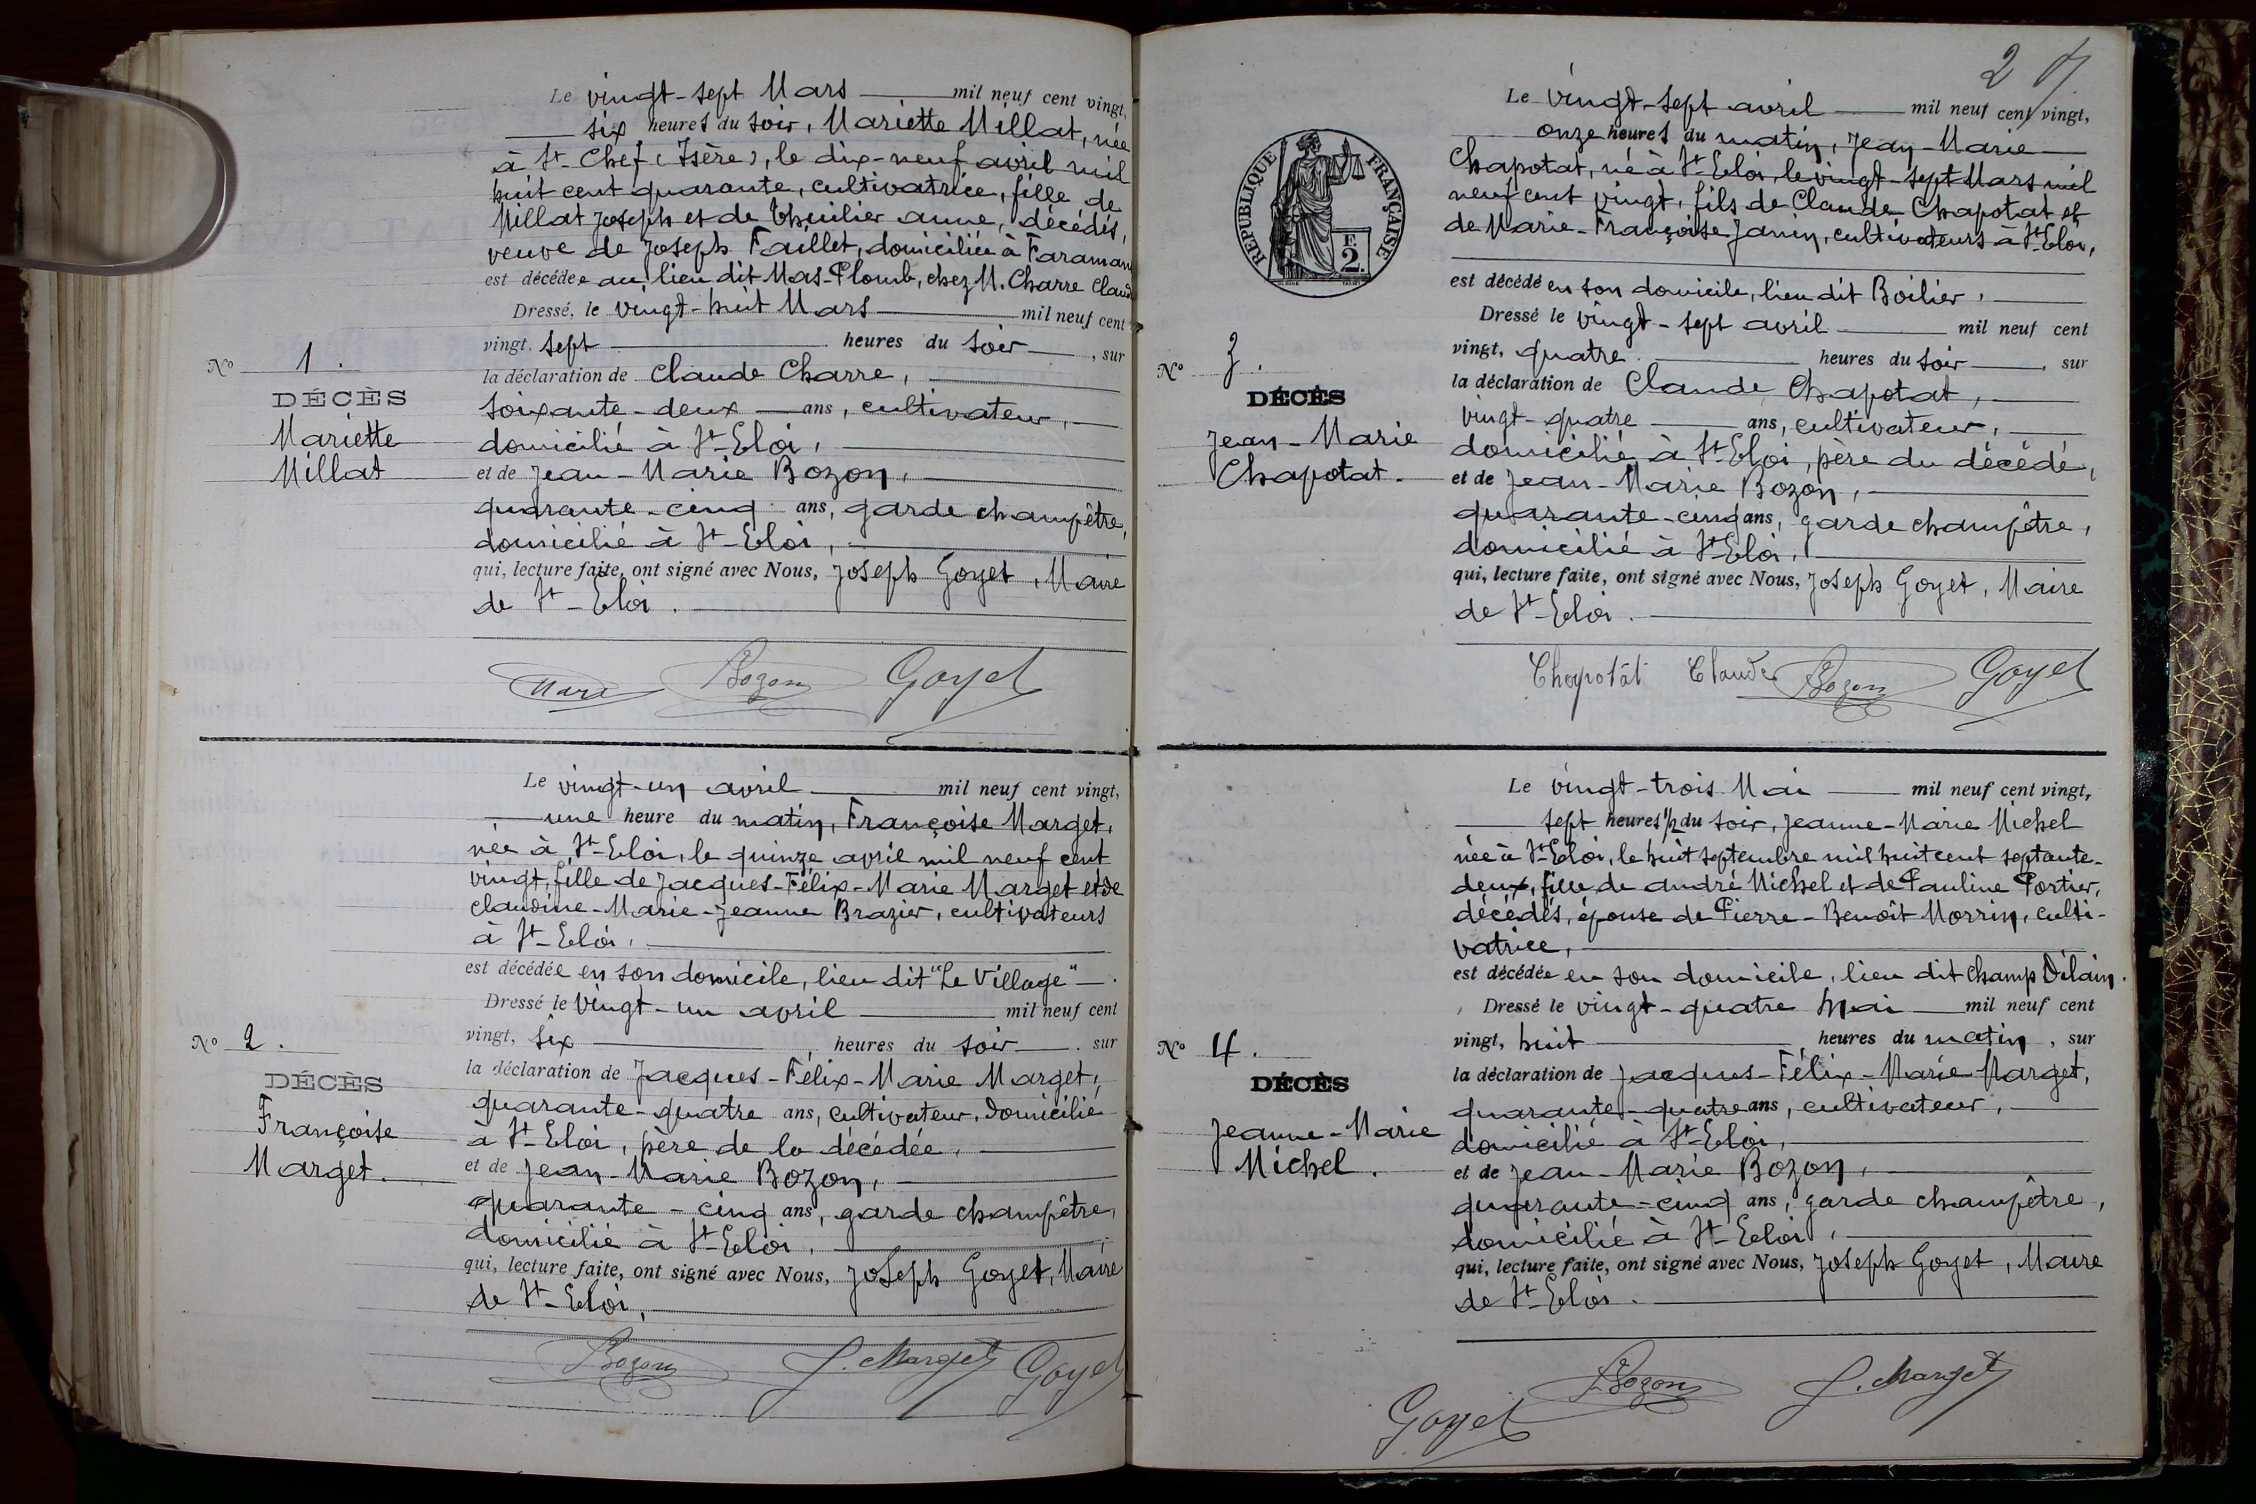 Le vingt-sept Mars mil neuf cent vingt,
six heures du soir, Mariette Millat, née
à St-Chef (Isère), le dix-neuf avril mil
huit cent quarante, cultivatrice, fille de
Millat Joseph et de Thuilier anne, décédés,
veuve de Joseph Faillet, domiciliée à Faraman
est décédée au lieu dit Mas-Plomb, chez M. Charre Claude
Dressé, le vingt-huit Mars mil neuf cent
vingt. sept heures du soir, sur
la déclaration de Claude Charre,
soixante-deux ans, cultivateur,
domicilié à St-Eloi,
et de Jean-Marie Bozon,
quarante-cinq ans, garde champêtre,
domicilié à St-Eloi,
qui, lecture faite, ont signé avec Nous, Joseph Goyet, Maire
de St-Eloi.
No 1.
DÉCÈS
Mariette
Millat
Bozon Goyet
Le vingt-un avril mil neuf cent vingt,
une heure du matin, Françoise Marget,
née à St-Eloi, le quinze avril mil neuf cent
vingt, fille de Jacques-Félix-Marie Marget et de
Claudine-Marie-Jeanne Brazier, cultivateurs
à St-Eloi,
est décédée en son domicile, lieu dit "Le Village".
Dressé le vingt-un avril mil neuf cent
vingt, six, heures du soir. sur
la déclaration de Jacques-Félix-Marie Marget,
quarante-quatre ans, cultivateur, domicilié
à St-Eloi, père de la décédée,
et de Jean-Marie Bozon,
quarante-cinq ans, garde champêtre,
domicilié à St-Eloi,
qui, lecture faite, ont signé avec Nous, Joseph Goyet, Maire
de St-Eloi,
No 2.
DÉCÈS
Françoise
Marget.
Bozon J. Marget Goyet
2
RÉPUBLIQUE FRANÇAISE
2.
Le vingt-sept avril mil neuf cent vingt,
onze heures du matin, Jean-Marie
Chapotat, né à St-Eloi, le vingt-sept Mars mil
neuf cent vingt, fils de Claude Chapotat et
de Marie-Françoise Janin, cultivateurs à St-Eloi,
est décédé en son domicile, lieu dit Boilier,
Dressé le vingt-sept avril mil neuf cent
vingt, quatre heures du soir, sur
la déclaration de Claude Chapotat,
vingt-quatre ans, cultivateur,
domicilié à St-Eloi, père du décédé,
et de Jean-Marie Bozon,
quarante-cinq ans, garde champêtre,
domicilié à St-Eloi,
qui, lecture faite, ont signé avec Nous, Joseph Goyet, Maire
de St-Eloi.
No 3.
DÉCÈS
Jean-Marie
Chapotat.
Chapotat Claude Bozon Goyet
Le vingt-trois Mai mil neuf cent vingt,
sept heures 1/2 du soir, Jeanne-Marie Michel
née à St-Eloi, le huit septembre mil huit cent septante-
deux, fille de andré Michel et de Pauline Portier,
décédés, épouse de Pierre-Benoît Morrin, culti-
vatrice,
est décédée en son domicile, lieu dit Champ Délain.
Dressé le vingt-quatre Mai mil neuf cent
vingt, huit, heures du matin, sur
la déclaration de Jacques-Félix-Marie Marget,
quarante-quatre ans, cultivateur,
domicilié à St-Eloi,
et de Jean-Marie Bozon,
quarante-cinq ans, garde champêtre,
domicilié à St-Eloi,
qui, lecture faite, ont signé avec Nous, Joseph Goyet, Maire
de St-Eloi.
No 4.
DÉCÈS
Jeanne-Marie
Michel.
Goyet Bozon J. Marget